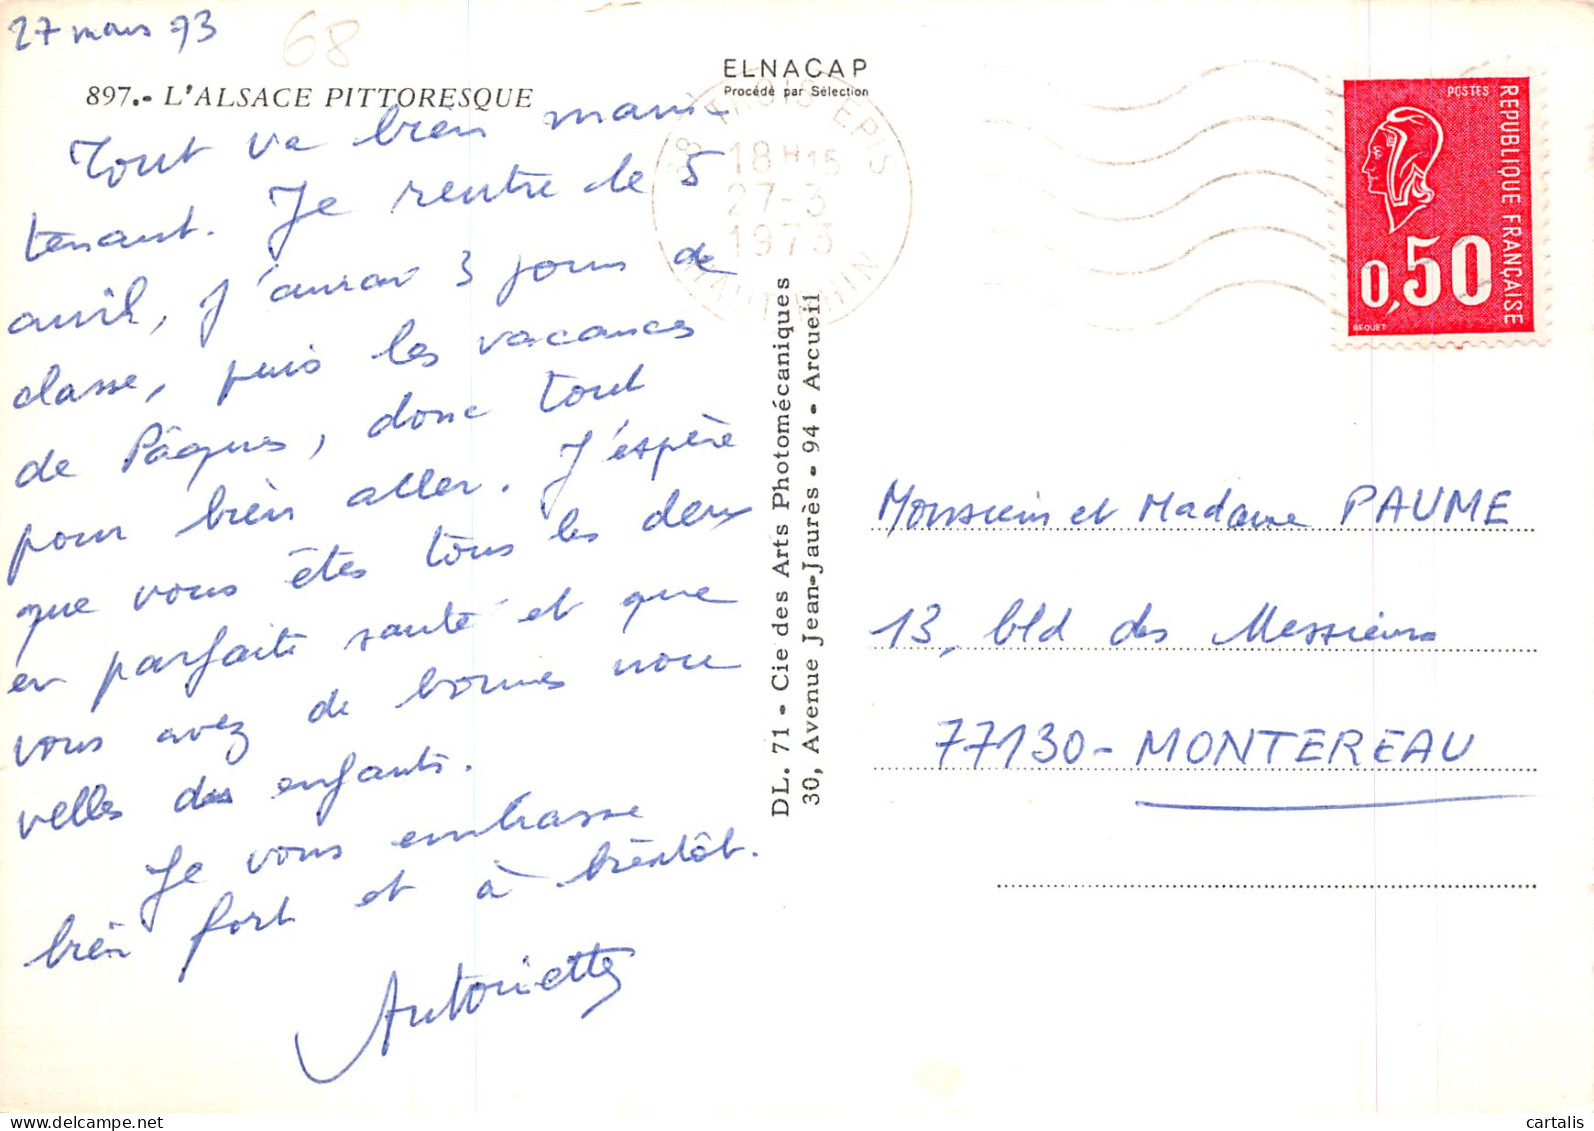 27 mars 73
68
897.- L'ALSACE PITTORESQUE
Tout va bien main-
tenant. Je rentre le 5
avril, j'aurai 3 jours de
classe, puis les vacances
de Pâques, donc tout
pour bien aller. J'espère
que vous êtes tous les deux
en parfaite santé et que
vous avez de bonnes nou
velles des enfants.
Je vous embrasse
bien fort et à bientôt.
Antoinette
ELNACAP
Procédé par Sélection
68 TROIS EPIS
18 H 15
27-3
1973
HAUT RHIN
DL. 71 - Cie des Arts Photomécaniques
30, Avenue Jean-Jaurès - 94 - Arcueil
POSTES
REPUBLIQUE FRANÇAISE
0,50
BEQUET
Monsieur et Madame PAUME
13, bld des Messieurs
77130 - MONTEREAU
cartalis
www.delcampe.net